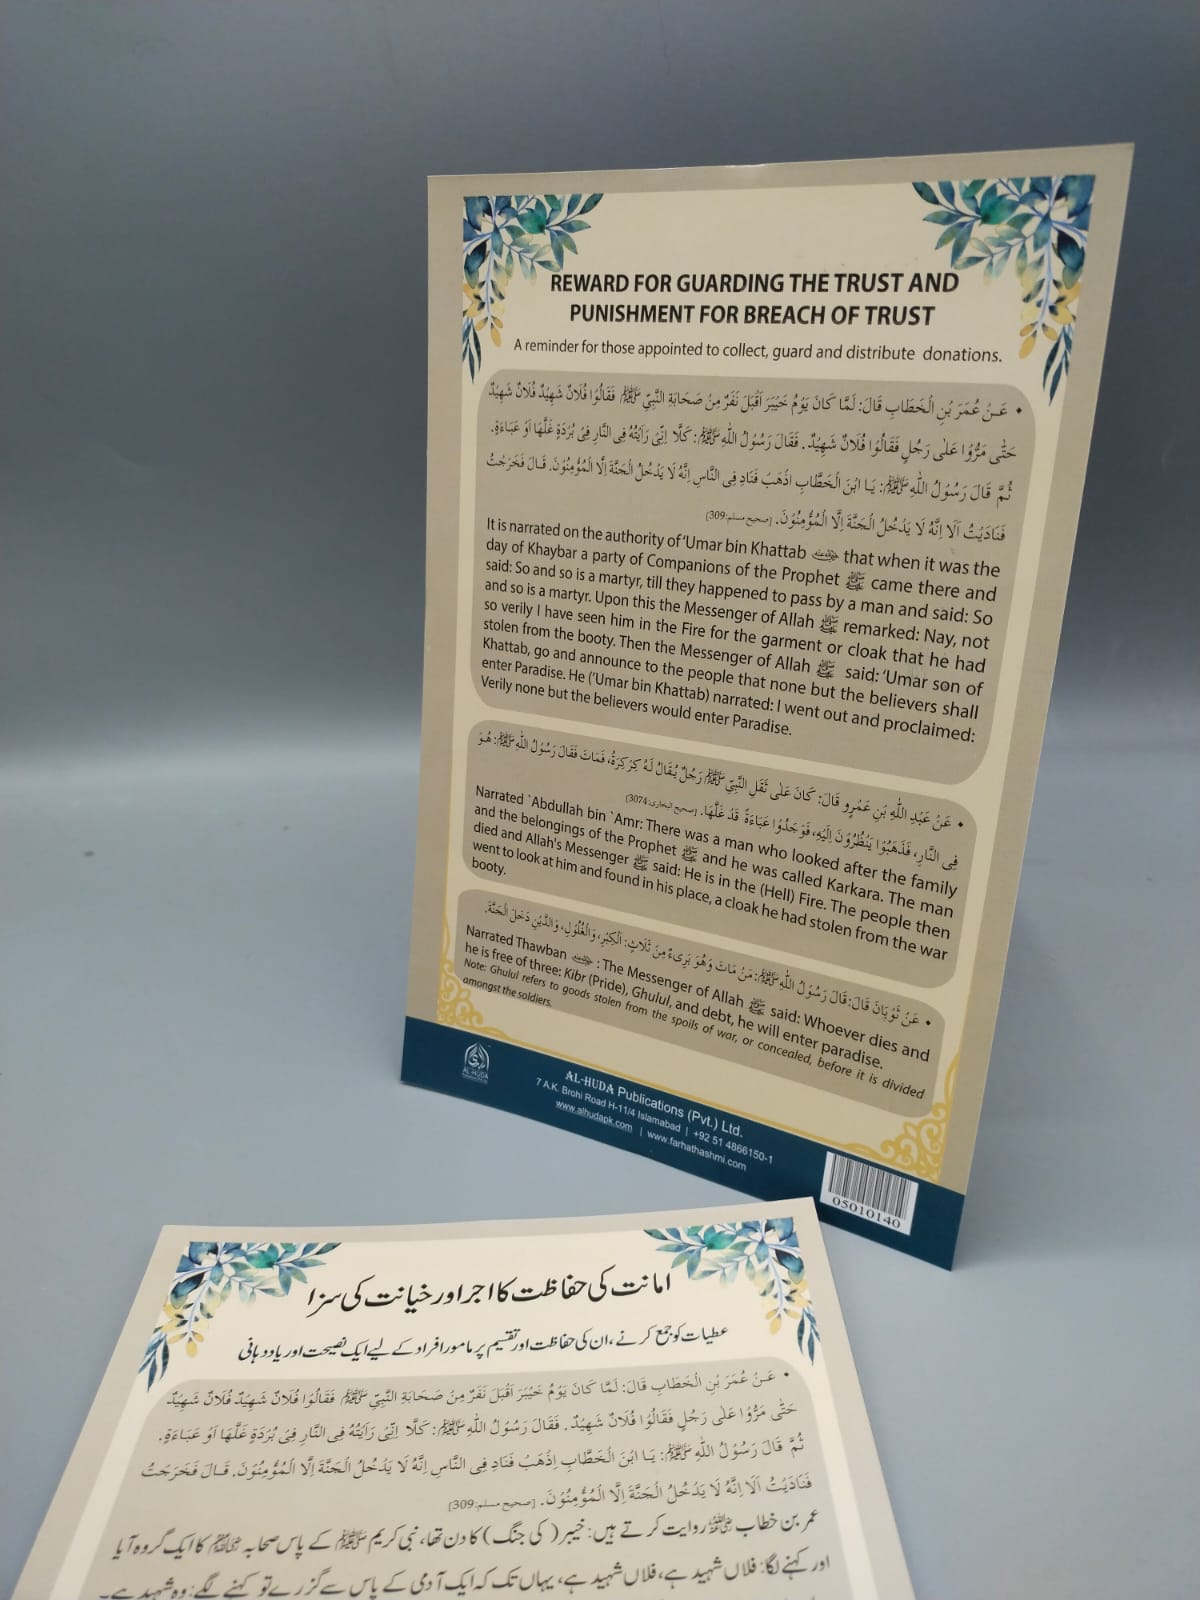 REWARD FOR GUARDING THE TRUST AND
PUNISHMENT FOR BREACH OF TRUST
A reminder for those appointed to collect, guard and distribute donations.
• عَنْ عُمَرَ بْنِ الْخَطَّابِ قَالَ: لَمَّا كَانَ يَوْمُ خَيْبَرَ اَقْبَلَ نَفَرٌ مِنْ صَحَابَةِ النَّبِيِّ ﷺ فَقَالُوْا فُلَانٌ شَهِيْدٌ فُلَانٌ شَهِيْدٌ
حَتّٰى مَرُّوْا عَلٰى رَجُلٍ فَقَالُوْا فُلَانٌ شَهِيْدٌ. فَقَالَ رَسُوْلُ اللّٰهِ ﷺ: كَلَّا اِنِّىْ رَاَيْتُهُ فِى النَّارِ فِىْ بُرْدَةٍ غَلَّهَا اَوْ عَبَاءَةٍ.
ثُمَّ قَالَ رَسُوْلُ اللّٰهِ ﷺ: يَا ابْنَ الْخَطَّابِ اذْهَبْ فَنَادِ فِى النَّاسِ اِنَّهُ لَا يَدْخُلُ الْجَنَّةَ اِلَّا الْمُؤْمِنُوْنَ. قَالَ فَخَرَجْتُ
فَنَادَيْتُ اَلَا اِنَّهُ لَا يَدْخُلُ الْجَنَّةَ اِلَّا الْمُؤْمِنُوْنَ. [صحيح مسلم:309]
It is narrated on the authority of ‘Umar bin Khattab that when it was the
day of Khaybar a party of Companions of the Prophet ﷺ came there and
said: So and so is a martyr, till they happened to pass by a man and said: So
and so is a martyr. Upon this the Messenger of Allah ﷺ remarked: Nay, not
so verily I have seen him in the Fire for the garment or cloak that he had
stolen from the booty. Then the Messenger of Allah ﷺ said: ‘Umar son of
Khattab, go and announce to the people that none but the believers shall
enter Paradise. He (‘Umar bin Khattab) narrated: I went out and proclaimed:
Verily none but the believers would enter Paradise.
• عَنْ عَبْدِ اللّٰهِ بْنِ عَمْرٍو قَالَ: كَانَ عَلٰى ثَقَلِ النَّبِيِّ ﷺ رَجُلٌ يُقَالُ لَهُ كِرْكِرَةُ، فَمَاتَ فَقَالَ رَسُوْلُ اللّٰهِ ﷺ: هُوَ
فِى النَّارِ، فَذَهَبُوْا يَنْظُرُوْنَ اِلَيْهِ، فَوَجَدُوْا عَبَاءَةً قَدْ غَلَّهَا. [صحيح البخارى:3074]
Narrated `Abdullah bin `Amr: There was a man who looked after the family
and the belongings of the Prophet ﷺ and he was called Karkara. The man
died and Allah's Messenger ﷺ said: He is in the (Hell) Fire. The people then
went to look at him and found in his place, a cloak he had stolen from the war
booty.
• عَنْ ثَوْبَانَ قَالَ: قَالَ رَسُوْلُ اللّٰهِ ﷺ: مَنْ مَاتَ وَهُوَ بَرِىْءٌ مِنْ ثَلَاثٍ: اَلْكِبْرِ، وَالْغُلُوْلِ، وَالدَّيْنِ دَخَلَ الْجَنَّةَ.
Narrated Thawban : The Messenger of Allah ﷺ said: Whoever dies and
he is free of three: Kibr (Pride), Ghulul, and debt, he will enter paradise.
Note: Ghulul refers to goods stolen from the spoils of war, or concealed, before it is divided
amongst the soldiers.
AL-HUDA
AL-HUDA Publications (Pvt.) Ltd.
7 A.K. Brohi Road H-11/4 Islamabad | +92 51 4866150-1
www.alhudapk.com | www.farhathashmi.com
05010140
امانت کی حفاظت کا اجر اور خیانت کی سزا
عطیات کو جمع کرنے، ان کی حفاظت اور تقسیم پر مامور افراد کے لیے ایک نصیحت اور یاد دہانی
• عَنْ عُمَرَ بْنِ الْخَطَّابِ قَالَ: لَمَّا كَانَ يَوْمُ خَيْبَرَ اَقْبَلَ نَفَرٌ مِنْ صَحَابَةِ النَّبِيِّ ﷺ فَقَالُوْا فُلَانٌ شَهِيْدٌ فُلَانٌ شَهِيْدٌ
حَتّٰى مَرُّوْا عَلٰى رَجُلٍ فَقَالُوْا فُلَانٌ شَهِيْدٌ. فَقَالَ رَسُوْلُ اللّٰهِ ﷺ: كَلَّا اِنِّىْ رَاَيْتُهُ فِى النَّارِ فِىْ بُرْدَةٍ غَلَّهَا اَوْ عَبَاءَةٍ.
ثُمَّ قَالَ رَسُوْلُ اللّٰهِ ﷺ: يَا ابْنَ الْخَطَّابِ اِذْهَبْ فَنَادِ فِى النَّاسِ اِنَّهُ لَا يَدْخُلُ الْجَنَّةَ اِلَّا الْمُؤْمِنُوْنَ. قَالَ فَخَرَجْتُ
فَنَادَيْتُ اَلَا اِنَّهُ لَا يَدْخُلُ الْجَنَّةَ اِلَّا الْمُؤْمِنُوْنَ. [صحيح مسلم:309]
عمر بن خطاب روایت کرتے ہیں: خیبر (کی جنگ) کا دن تھا، نبی کریم ﷺ کے پاس صحابہ کا ایک گروہ آیا
اور کہنے لگا: فلاں شہید ہے، فلاں شہید ہے، یہاں تک کہ ایک آدمی کے پاس سے گزرے تو کہنے لگے: وہ شہید ہے۔